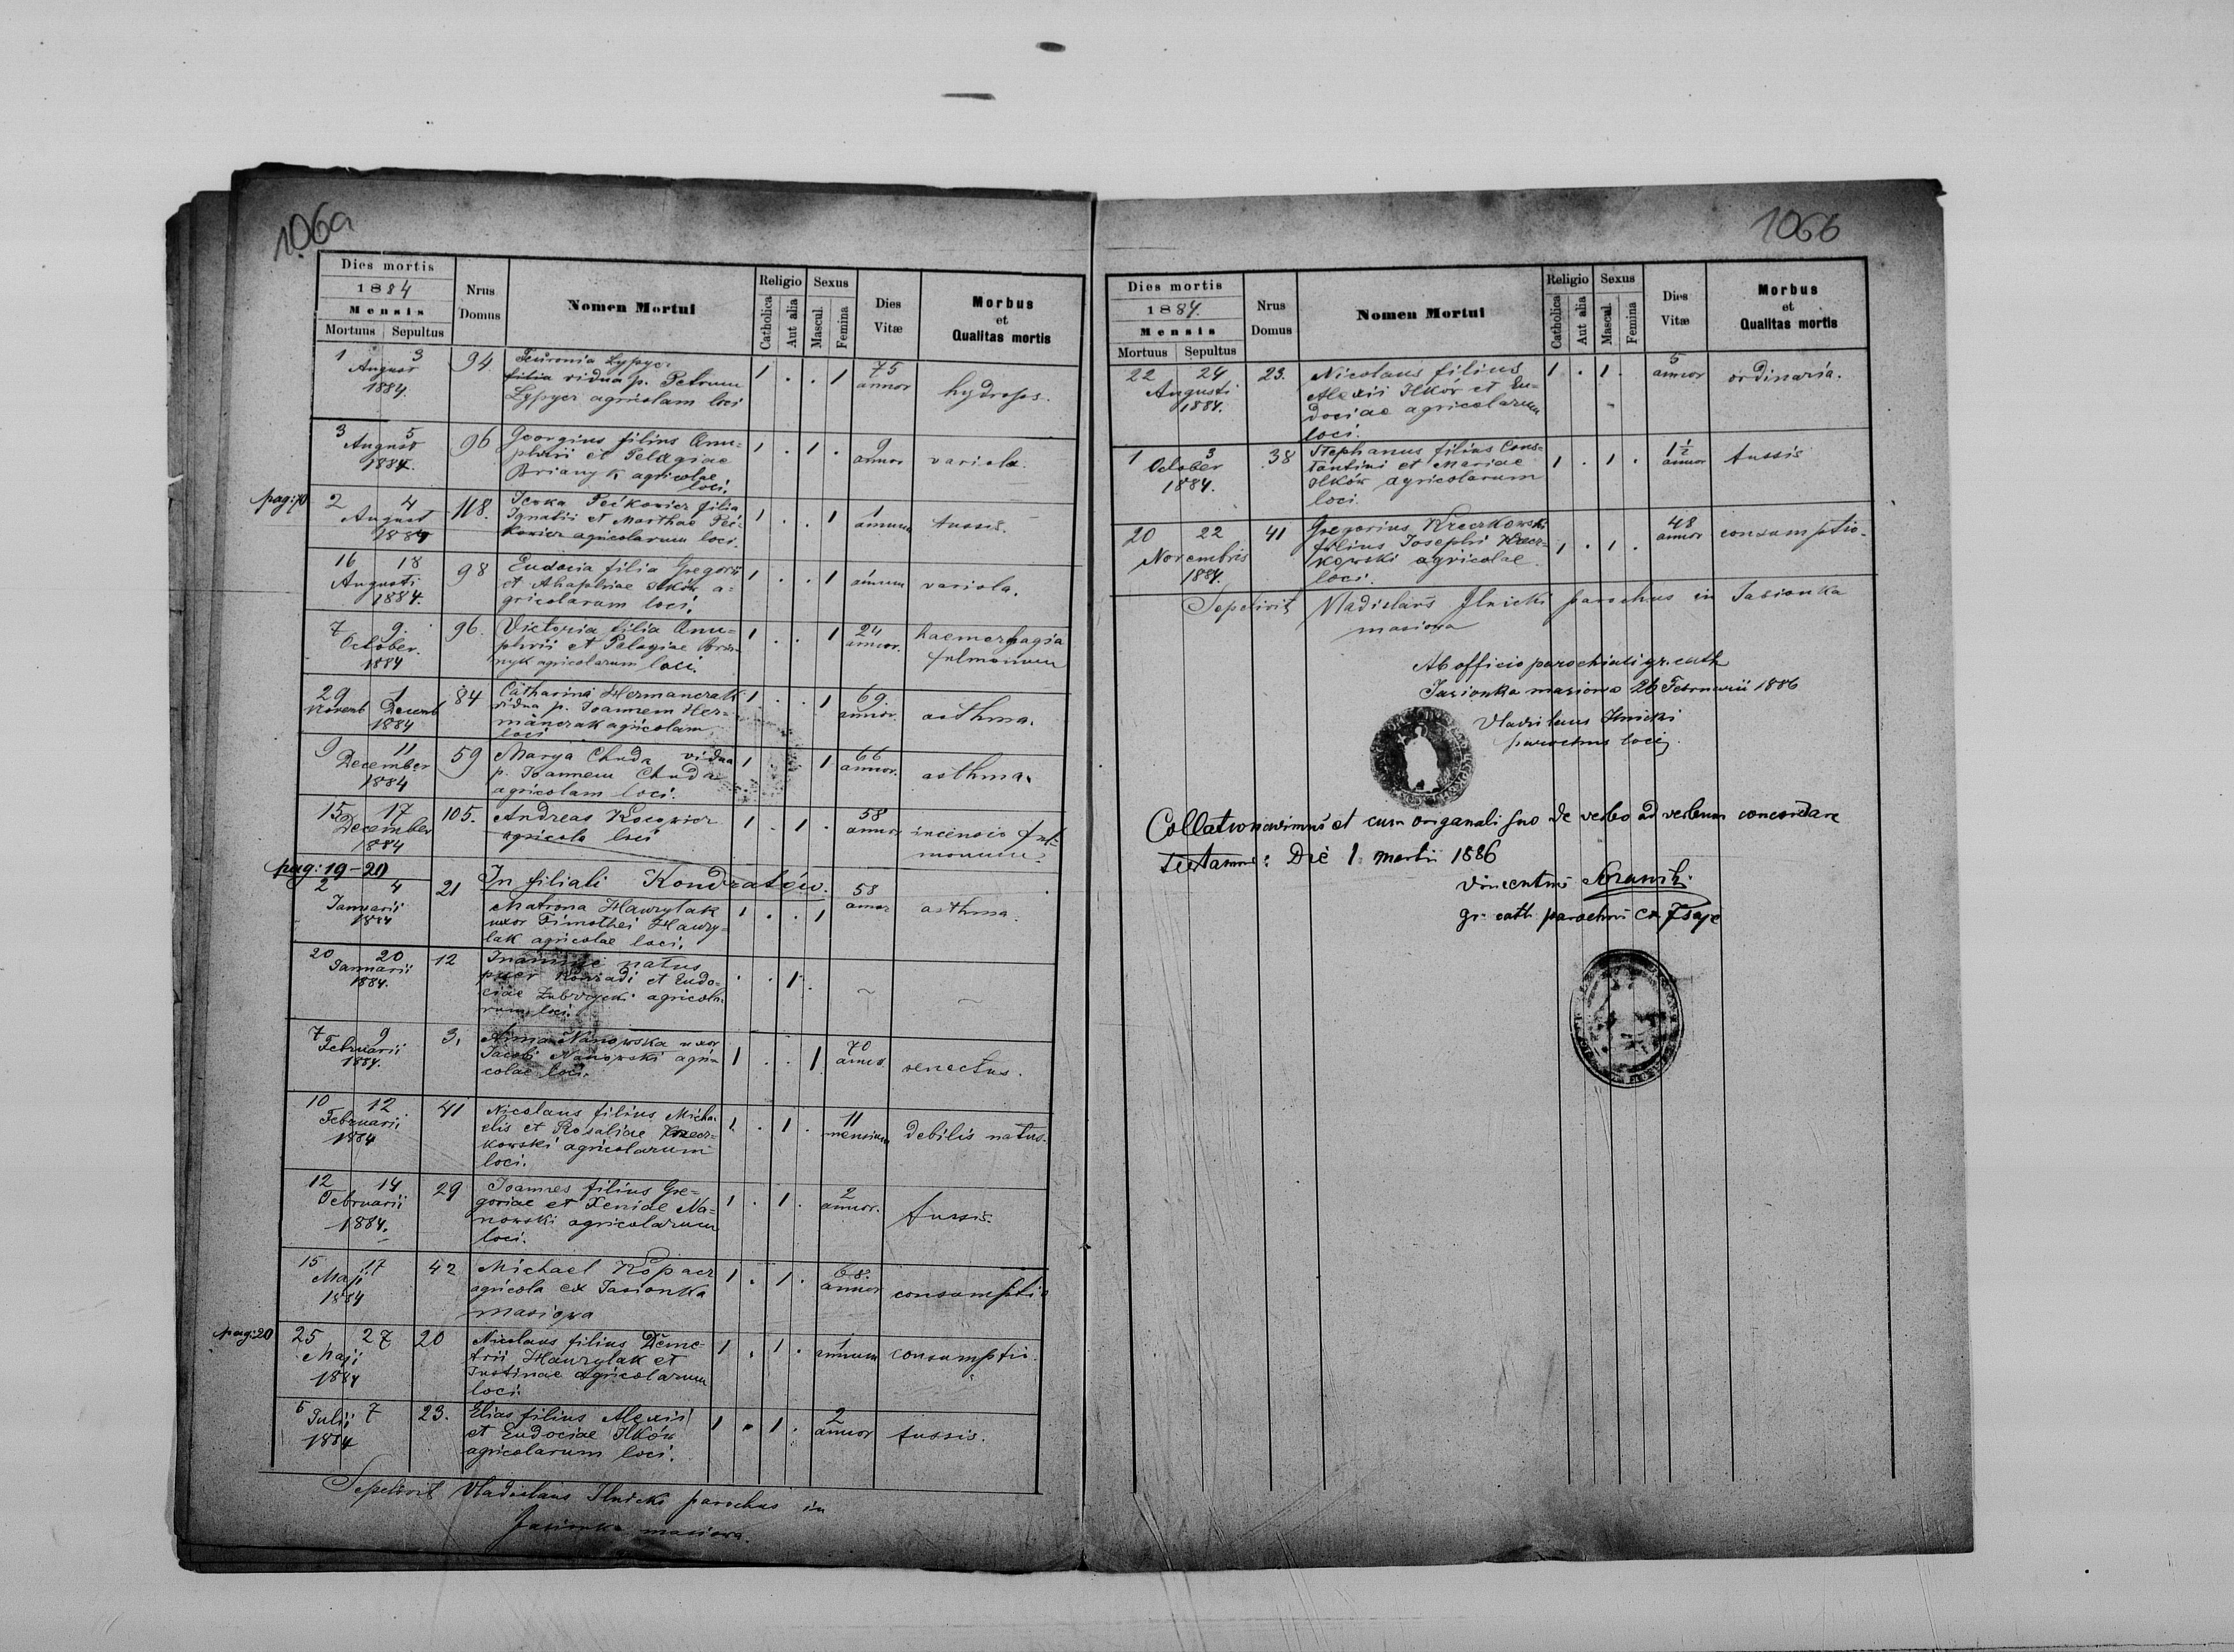 106a
Dies mortis
1884
Mensis
Mortuus Sepultus
Nrus Domus
Nomen Mortui
Religio
Catholica
Aut alia
Sexus
Mascul.
Femina
Dies Vitæ
Morbus
et
Qualitas mortis
1 3 94. Lypyer 1 . . 1 75
August filia vidua p. Petrum annor hydrops.
1884. Lypyer agricolam loci
3 5 96 Georgius filius Onu= 1 . 1 . 9
August phrii et Pelagiae annor variola.
1884. Brianyk agricolae
loci.
pag: 70
2 4 118. Pećkowicz filia 1 . . 1 1
August Ignatii et Marthae Peć= annum tussis.
1884 kowicz agricolarum loci.
16 18 98 Eudocia filia Gregorii 1 . . 1
Augusti et Ahaphiae Ilków a= annum variola.
1884. gricolarum loci.
7 9. 96. Victoria filia Onu= 1 . . 1 24 haemorhagia
October. phrii et Pelagiae annor. pulmonum
1884 nyk agricolarum loci.
29 1 84 Catharina Hermanczak 1 . . 1 69.
Novemb Decemb vidua p. Joannem Her= annor. asthma.
1884 mánczak agricolam
loci
9 11 59 Marya Chuda vidua 1 1 66
December p. Joannem Chuda annor. asthma.
1884 agricolam loci.
15 17 105. Andreas Kocowicz 1 . 1 . 58
December agricola loci annor incensio pul=
1884 monum.
pag: 19-20
In filiali Kondratów.
2 4 21 Matrona Hawrylak 1 . . 1 58
Januarii uxor Timothei Hawry= annor asthma.
1884 lak agricolae loci.
20 20 12 natus . . 1 .
Januarii puer Konradi et Eudo=
1884. ciae Zubrzycki agricola
rum loci.
7 9 3. Anna Nanowska uxor 1 . . 1 70
Februarii Jacobi Nanowski agri= annor. senectus.
1884. colae loci.
10 12 41 Nicolaus filius Micha 1 . 1 . 11
Februarii elis et Rosaliae Krecz= mensium debilis natus.
1884 kowski agricolarum
loci.
12 14 29 Joannes filius Gre= 1 . 1 . 2
Februarii goriae et Xeniae Na= annor. tussis.
1884. nowski agricolarum
loci.
15 17 42 Michael Kopacz 1 . 1 . 68.
Maji agricola ex Jasionka annor consumptio
1884 masiowa
pag: 20
25 27 20 Nicolaus filius Deme= 1 . 1 . 1
Maji trii Hawrylak et annum consumptio.
1884 Justinae agricolarum
loci.
5 7 23. Elias filius Alexii 1 . 1 . 2
Julii et Eudociae Ilków annor tussis.
1884 agricolarum loci.
Sepelivit Vladislaus Ilnicki parochus in
Jasionka masiowa.
106b
Dies mortis
1884.
Mensis
Mortuus Sepultus
Nrus Domus
Nomen Mortui
Religio
Catholica
Aut alia
Sexus
Mascul.
Femina
Dies Vitæ
Morbus
et
Qualitas mortis
22 24 23. Nicolaus filius 1 . 1 . 5
Augusti Alexii Ilków et Eu= annor ordinaria.
1884. dociae agricolarum
loci.
1 3 38 Stephanus filius Cons= 1 . 1 . 1½
October tantini et Mariae annor tussis
1884. Ilków agricolarum
loci.
20 22 41 Gregorius Kreczkowski 1 . 1 . 48
Novembris filius Josephi Krecz= annor consumptio.
1884. kowski agricolae
loci.
Sepelivit Vladislaus Ilnicki parochus in Jasionka
masiowa
Ab officio parochiali gr. cath
Jasionka masiowa 26 Februarii 1886
Vladislaus Ilnicki
parochus loci.
Collationavimus et cum originali suo de verbo ad verbum concordare
testamur: Die 1. martii 1886
Vincentius
gr. cath parochus ex